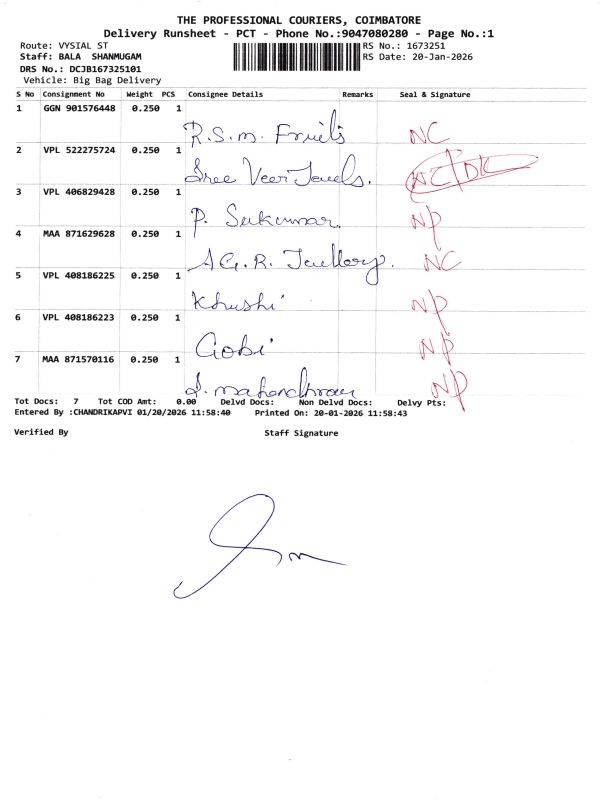 THE PROFESSIONAL COURIERS, COIMBATORE
Delivery Runsheet - PCT - Phone No.:9047080280 - Page No.:1
Route: VYSIAL ST RS No.: 1673251
Staff: BALA SHANMUGAM RS Date: 20-Jan-2026
DRS No.: DCJB167325101
Vehicle: Big Bag Delivery
S No Consignment No Weight PCS Consignee Details Remarks Seal & Signature
1 GGN 901576448 0.250 1
R.S.m. Fruits NC
2 VPL 522275724 0.250 1
Sree Veer Jewels. NC DK
3 VPL 406829428 0.250 1
P. Sukumar. NP
4 MAA 871629628 0.250 1
A.G.R. NC
5 VPL 408186225 0.250 1
Khushi NP
6 VPL 408186223 0.250 1
Gobi NP
7 MAA 871570116 0.250 1
NP
Tot Docs: 7 Tot COD Amt: 0.00 Delvd Docs: Non Delvd Docs: Delvy Pts:
Entered By :CHANDRIKAPVI 01/20/2026 11:58:40 Printed On: 20-01-2026 11:58:43
Verified By Staff Signature